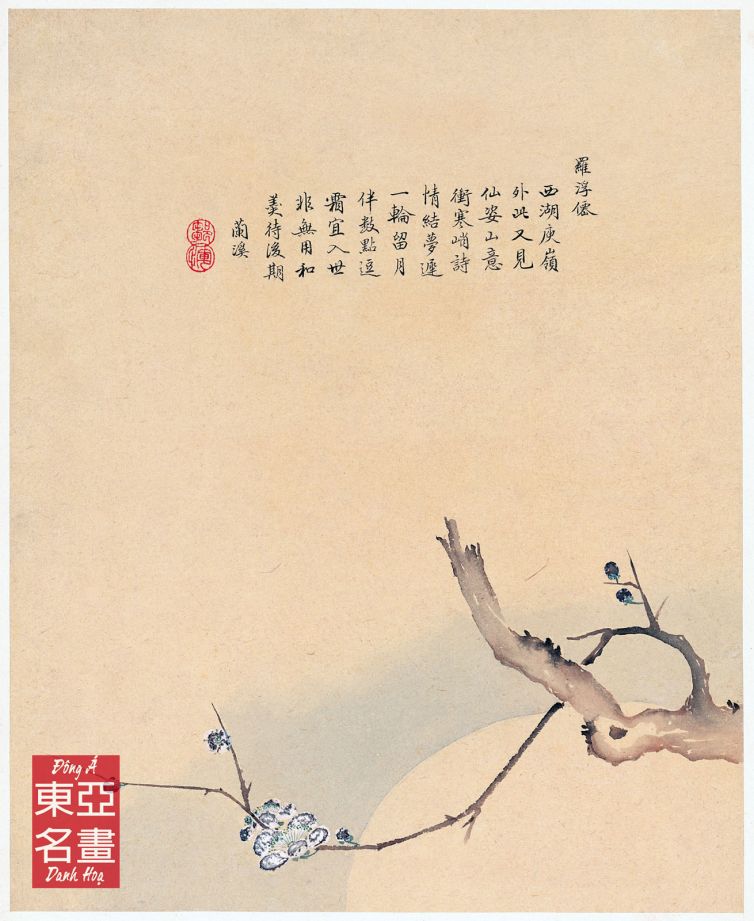 羅浮僊
西湖庾嶺
外此又見
仙姿山意
衝寒峭詩
情結夢遲
一輪留月
伴數點逗
霜宜入世
非無用和
羹待後期
蘭溪
Đông Á
東亞
名畫
Danh Hoạ